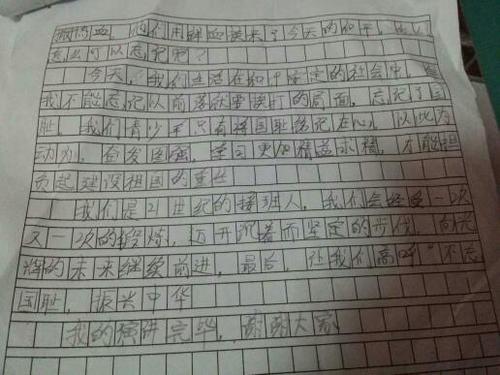 他们用鲜血换来了今天的和平，我们
怎么可以忘记呢？
今天，我们生活在和平安定的社会中，
我不能忘记以前落就要挨打的局面，忘记了国
耻，我们青少年只有将国耻铭记在心，以此为
动力，奋发图强，学习更加精益求精，才能担
负起建设祖国的重任
我们是21世纪的接班人，我们会经受一次
又一次的锻炼，迈开沉着而坚定的步伐，向光
辉的未来继续前进，最后，让我们高呼“不忘
国耻，振兴中华
我的演讲完毕，谢谢大家